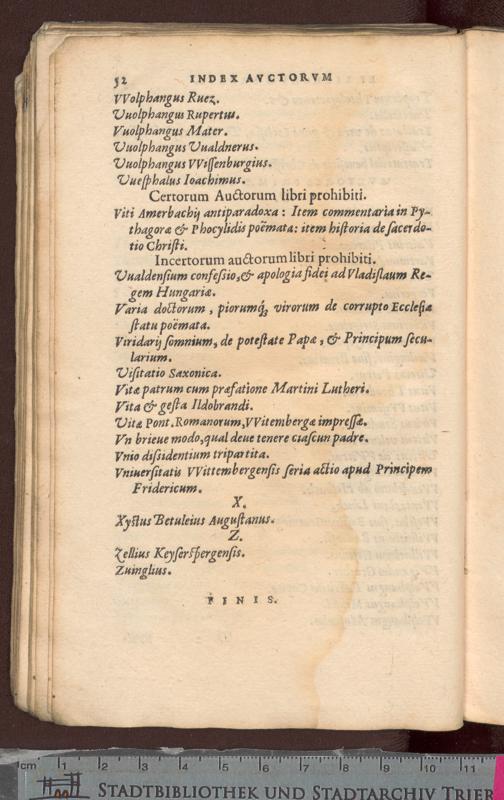 52 INDEX AVCTORVM
VVolphangus Ruez.
Vuolphangus Rupertus.
Vuolphangus Mater.
Vuolphangus Vualdnerus.
Vuolphangus VVissenburgius.
Vuesphalus Ioachimus.
Certorum Auctorum libri prohibiti.
Viti Amerbachij antiparadoxa: Item commentaria in Py-
thagorę & Phocylidis poëmata: item historia de sacerdo-
tio Christi.
Incertorum auctorum libri prohibiti.
Vualdensium confessio, & apologia fidei ad Vladislaum Re-
gem Hungariæ.
Varia doctorum, piorumq́; virorum de corrupto Ecclesiæ
statu poëmata.
Viridarij somnium, de potestate Papæ, & Principum secu-
larium.
Visitatio Saxonica.
Vitæ patrum cum præfatione Martini Lutheri.
Vita & gesta Ildobrandi.
Vitæ Pont. Romanorum, VVitembergæ impressæ.
Vn brieue modo, qual deue tenere ciascun padre.
Vnio dissidentium tripartita.
Vniuersitatis VVittembergensis seria actio apud Principem
Fridericum.
X.
Xystus Betuleius Augustanus.
Z.
Zellius Keyserspergensis.
Zuinglius.
FINIS.
cm 1 2 3 4 5 6 7 8 9 10 11
STADTBIBLIOTHEK UND STADTARCHIV TRIER